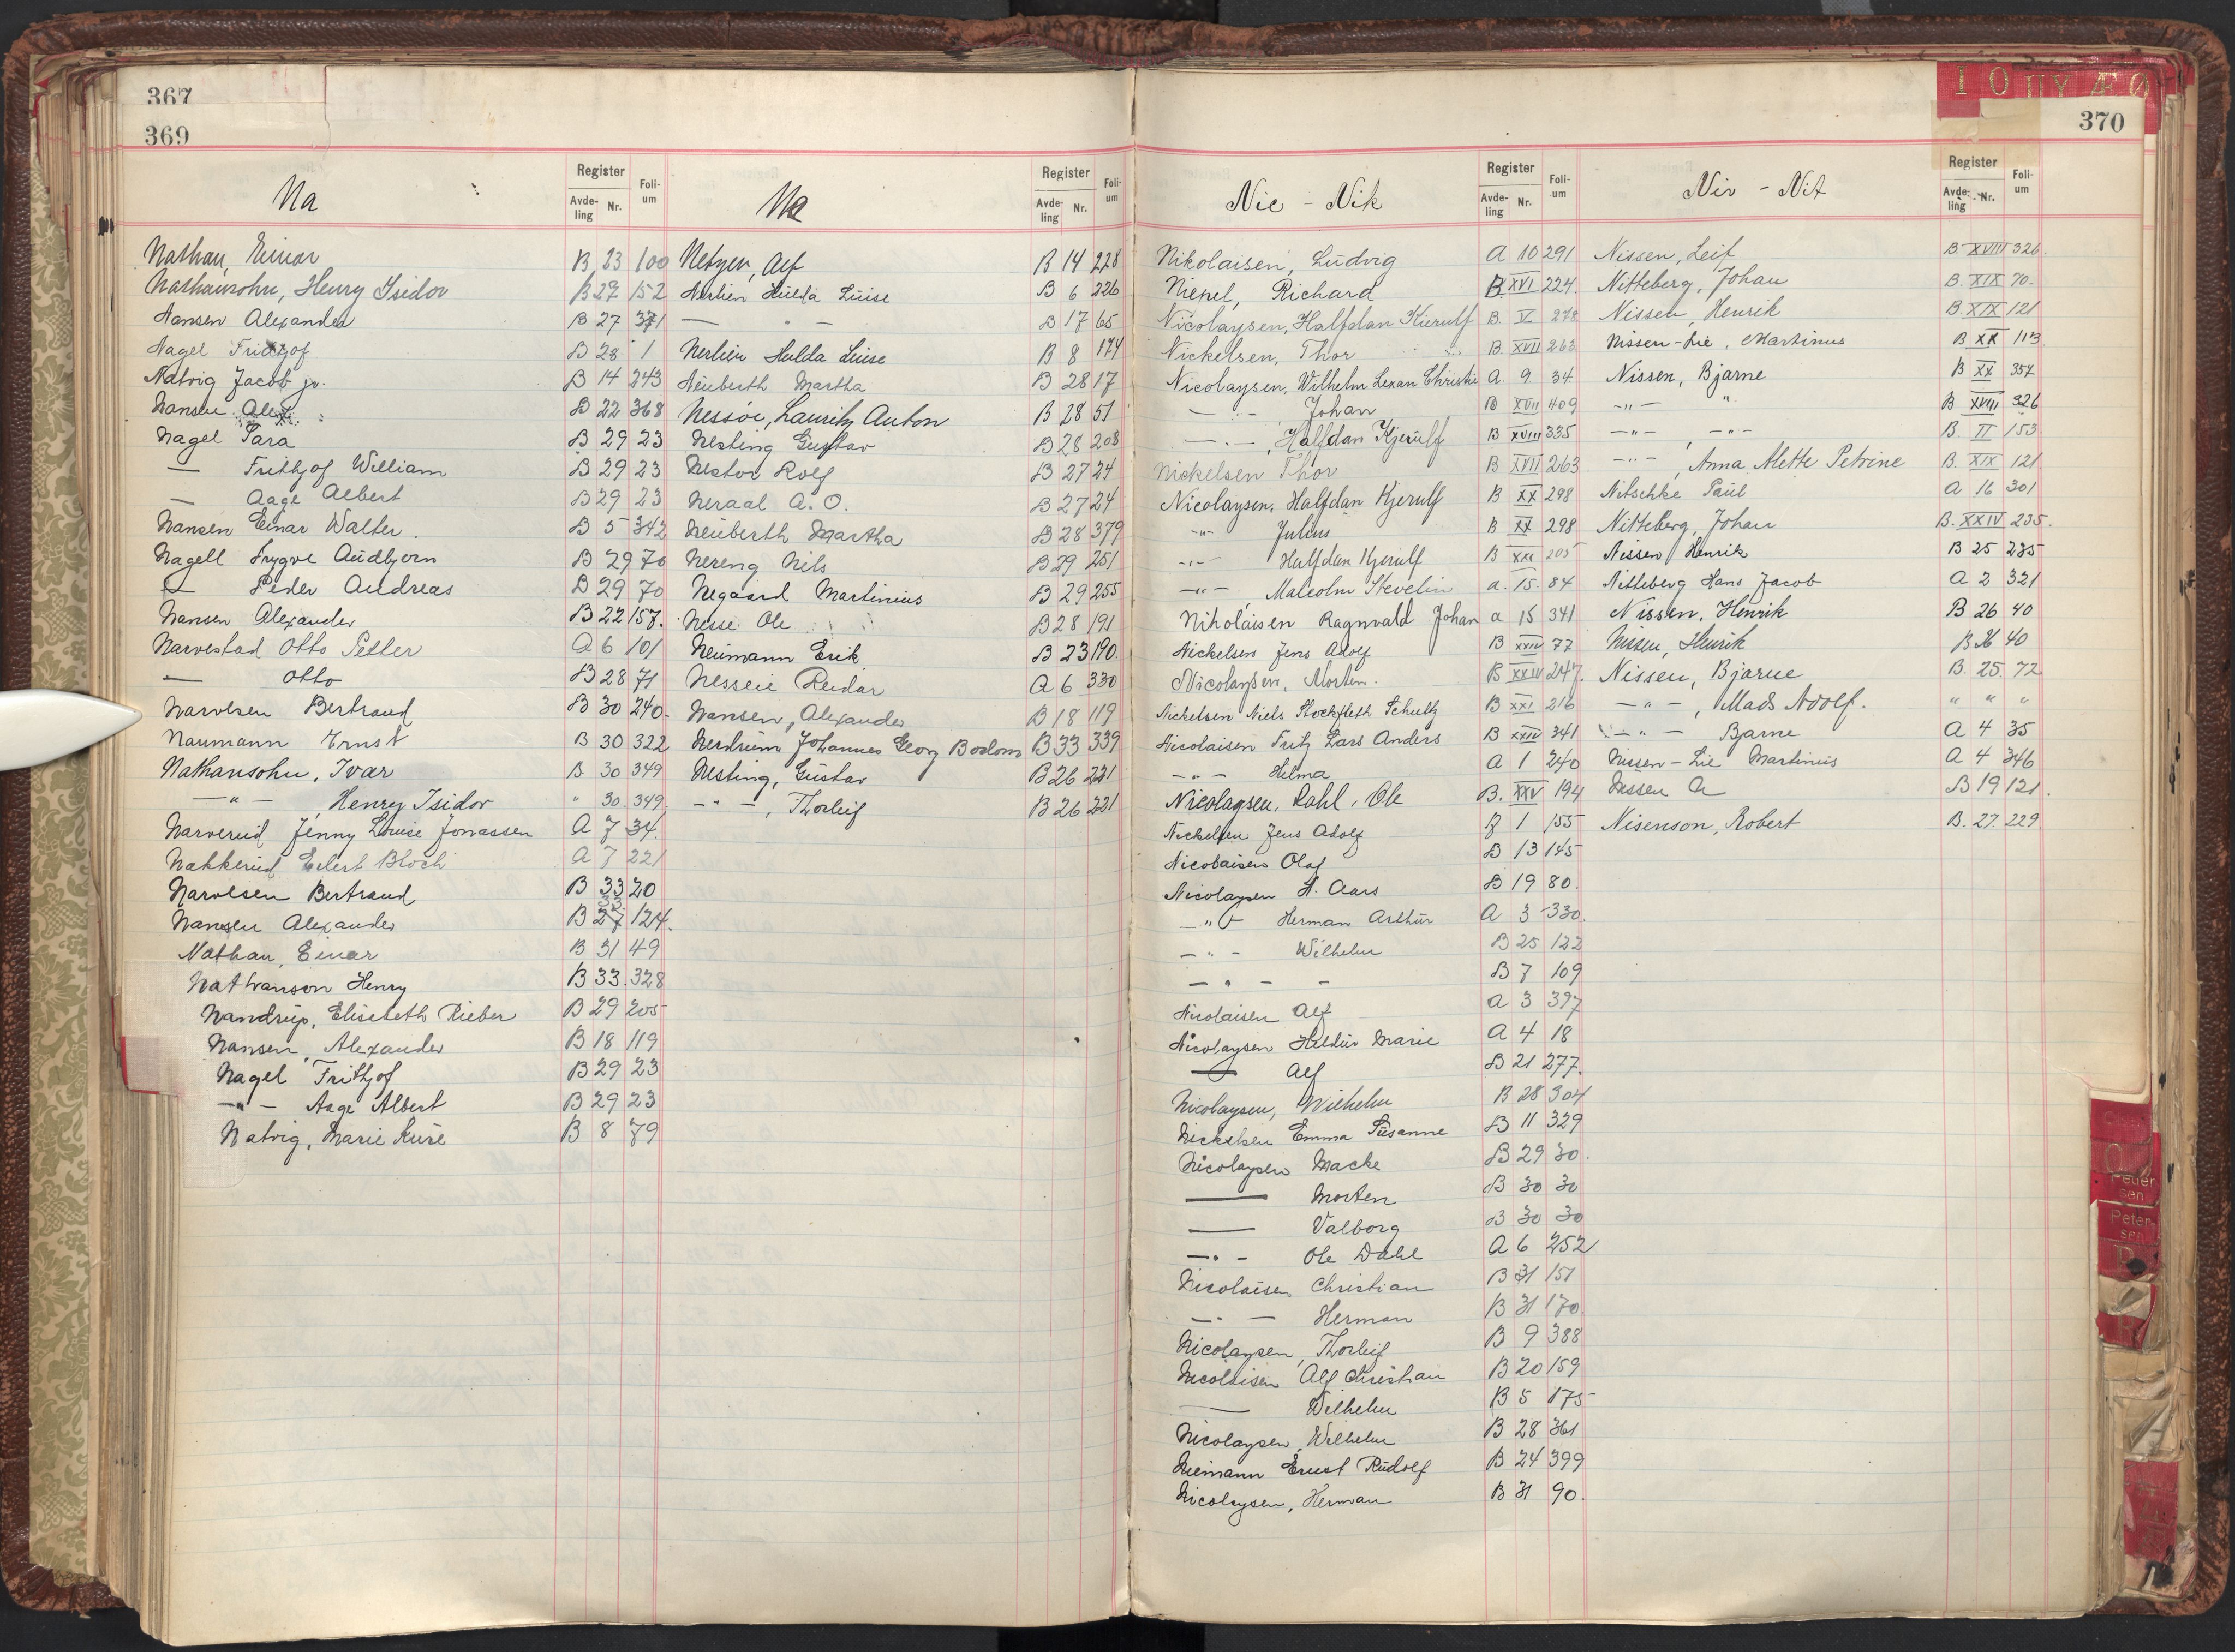 367
369
Na
Register
Avdeling Nr.
Folium
Nathan, Einar B 23 100
Nathansohn, Henry Isidor B 27 152
Nansen Alexander B 27 371
Nagel Frithjof B 28 1
Natvig Jacob jr. B 14 243
Nansen Alex. B 22 368
Nagel Sara B 29 23
— Frithjof William B 29 23
— Aage Albert B 29 23
Nansen Einar Walter B 5 342
Nagell Trygve Audbjørn B 29 70
— Peder Andreas B 29 70
Nansen Alexander B 22 157.
Narvestad Otto Petter A 6 101
— Otto B 28 71
Narvesen Bertrand B 30 240.
Naumann Ernst B 30 322
Nathansohn, Ivar B 30 349
—"— , Henry Isidor " 30. 349.
Narverud Jenny Louise Jonassen A 7 34.
Nakkerud Eilert Bloch A 7 221
Narvesen Bertrand B 33 20
Nansen Alexander B 27 124.
Nathan, Einar B 31 49
Nathanson Henry B 33. 328
Nandrup, Elisabeth Rieber B 29 205
Nansen, Alexander B 18 119
Nagel Frithjof B 29 23
—"— Aage Albert B 29 23
Natvig, Marie Kure B 8 79
Ne
Register
Avdeling Nr.
Folium
Netzen, Alf B 14 228
Nerlien Hulda Luise B 6 226
— " — B 17 65
Nerlien Hulda Luise B 8 174
Neuberth Martha B 28 17
Nessøe, Lauritz Anton B 28 51
Nesting Gustav B 28 208
Nestor Rolf B 27 24
Neraal A. O. B 27 24
Neuberth Martha B 28 379
Nereng Nils B 29 251
Negaard Martinius B 29 255
Nesse Ole B 28 191
Neumann Erik B 23 190.
Nesseie Reidar A 6 330
Nansen, Alexander B 18 119
Nerdrum Johannes Georg Bodom B 33 339
Nesting, Gustav B 26 221
—"— , Thorleif B 26 221
370
Nic - Nik
Register
Avdeling Nr.
Folium
Nikolaisen, Ludvig A 10 291
Niepel, Richard B XVI 224.
Nicolaysen, Halfdan Kierulf B. V 278
Nickelsen, Thor B XVII 263
Nicolaysen, Wilhelm Lexan Christie A. 9 34
—"— Johan B XVII 409
—"— , Halfdan Kjerulf B XVIII 335
Nickelsen Thor B XVII 263
Nicolaysen, Halfdan Kjerulf B XX 298
—"— Julius B XX 298
—"— Halfdan Kjerulf B XXI 205
—"— Malcolm Stevelin a. 15. 84
Nikolaisen Ragnvald Johan a 15 341
Nickelsen Jens Adolf B XXIV 77
Nicolaysen, Morten. B XXIV 247.
Nickelsen Niels Stockfleth Schultz B XXI 216
Nicolaisen Fritz Lars Anders B XXIV 341
—"— Helma A 1 240
Nicolaysen, Dahl, Ole B. XXV 194
Nickelsen Jens Adolf B 1 155
Nicolaisen Olaf B 13 145
Nicolaysen H. Aars B 19 80.
—"— Herman Arthur A 3 330.
—"— Wilhelm B 25 122
— " — — B 7 109
Nicolaisen Alf a 3 397
Nicolaysen Hildur Marie A 4 18
— Alf B 21 277.
Nicolaysen, Wilhelm B 28 304
Nickelsen Emma Susanne B 11 329
Nicolaysen Macke B 29 30.
— Morten B 30 30
— Valborg B 30 30
—"— Ole Dahl A 6 252
Nicolaisen Christian B 31 151
—"— Herman B 31 170.
Nicolaysen, Thorleif B 9 388
Nicolaisen Alf Christian B 20 159
— Wilhelm B 5 175
Nicolaysen, Wilhelm B 28 361
Niemann Ernst Rudolf B 24 399
Nicolaysen, Herman B 31 90.
Nir - Nit
Register
Avdeling Nr.
Folium
Nissen, Leif B. XVIII 326.
Nitteberg, Johan B. XIX 70.
Nissen, Henrik B. XIX 121
Nissen-Lie, Martinus B XX 113
Nissen, Bjarne B XX 357
—"— " B XVIII 326
—"— , —"— B. II 153
—"— , Anna Alette Petrine B. XIX 121
Nitschke Paul A 16 301
Nitteberg, Johan B. XXIV 235.
Nissen Henrik B 25 235
Nitteberg Hans Jacob A 2 321
Nissen, Henrik B 26 40
Nissen, Henrik B 26 40
Nissen, Bjarne B. 25. 72
—"— , Mads Adolf. " " "
—"— Bjarne A 4 35
Nissen-Lie Martinius A 4 346
Nissen A B 19 121.
Nisenson, Robert B. 27. 229
I O ÆØ
Peder
sen
Peter-
sen
P